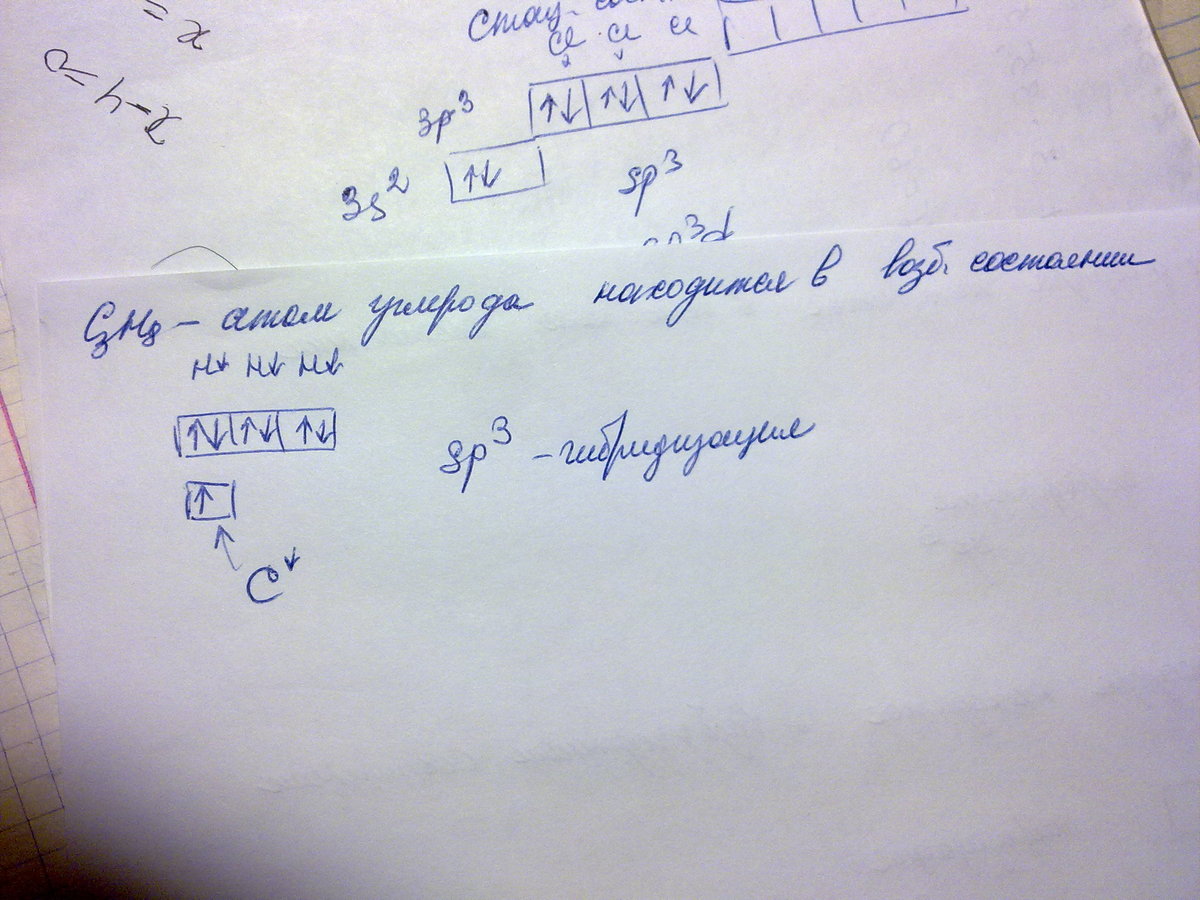 Cl Cl Cl
3p³ ↑↓ ↑↓ ↑↓
3s² ↑↓
sp³
sp³d
C₃H₈ – атом углерода находится в возб. состоянии
H↓ H↓ H↓
↑↓ ↑↓ ↑↓
sp³ – гибридизация
↑
C↓